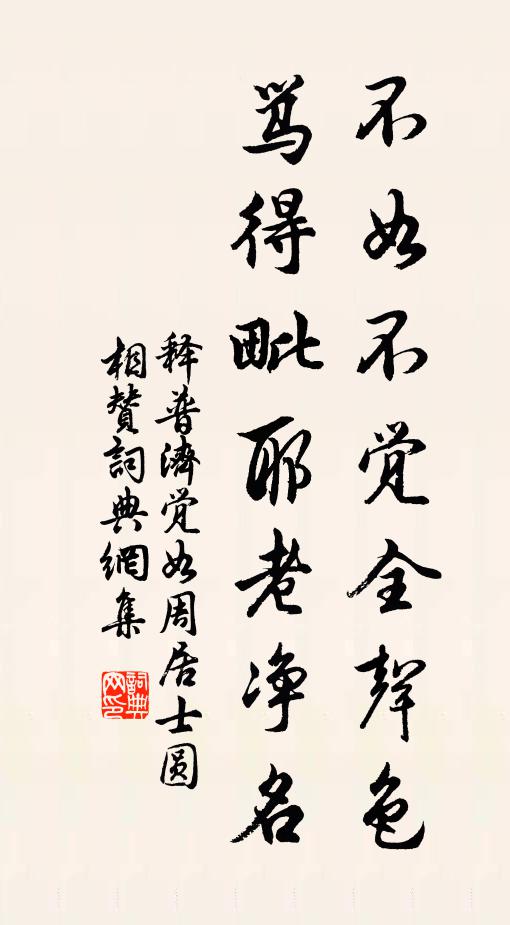 不如不觉全聲色
骂得毗耶老净名
释普濟觉如周居士圆
相赞詞典網集
詞典网印